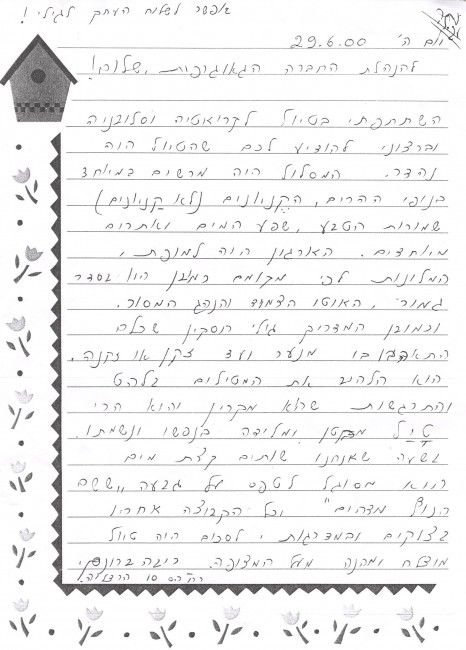 אפשר לשלוח העתק לגילי!
יום ה' 29.6.00
להנהלת החברה הגאוגרפית, שלום!
השתתפתי בטיול לקרואטיה וסלובניה
וברצוני להודיע לכם שהטיול היה
נהדר. המסלול היה מרשים במיוחד
בנופי ההרים, הקניונים (לא קניונים)
שמורות הטבע, שפע המים ואתרים
מיוחדים. הארגון היה למופת,
המלונות לפי מקומם כמובן היו בסדר
גמור, האוטו הצמוד והנהג המסור.
וכמובן המדריך גילי חסקין שכולם
התאהבו בו מנער ועד זקן או זקנה.
הוא הלהיב את המטיילים בלהט
והתרגשות שהוא מקרין והוא הרי
טייל מקטן ומלידה בנפשו ונשמתו.
בשעה שאנחנו שותים קצת מים
הוא מסוגל לטפס על גבעה "ששם
הנוף מדהים" וכל הקבוצה אחריו
בצוקים ובמדרגות, לסכום היה טיול
מוצלח ומהנה מעל המצופה. ריבה ברונסקי
רח' הס 10 הרצליה.